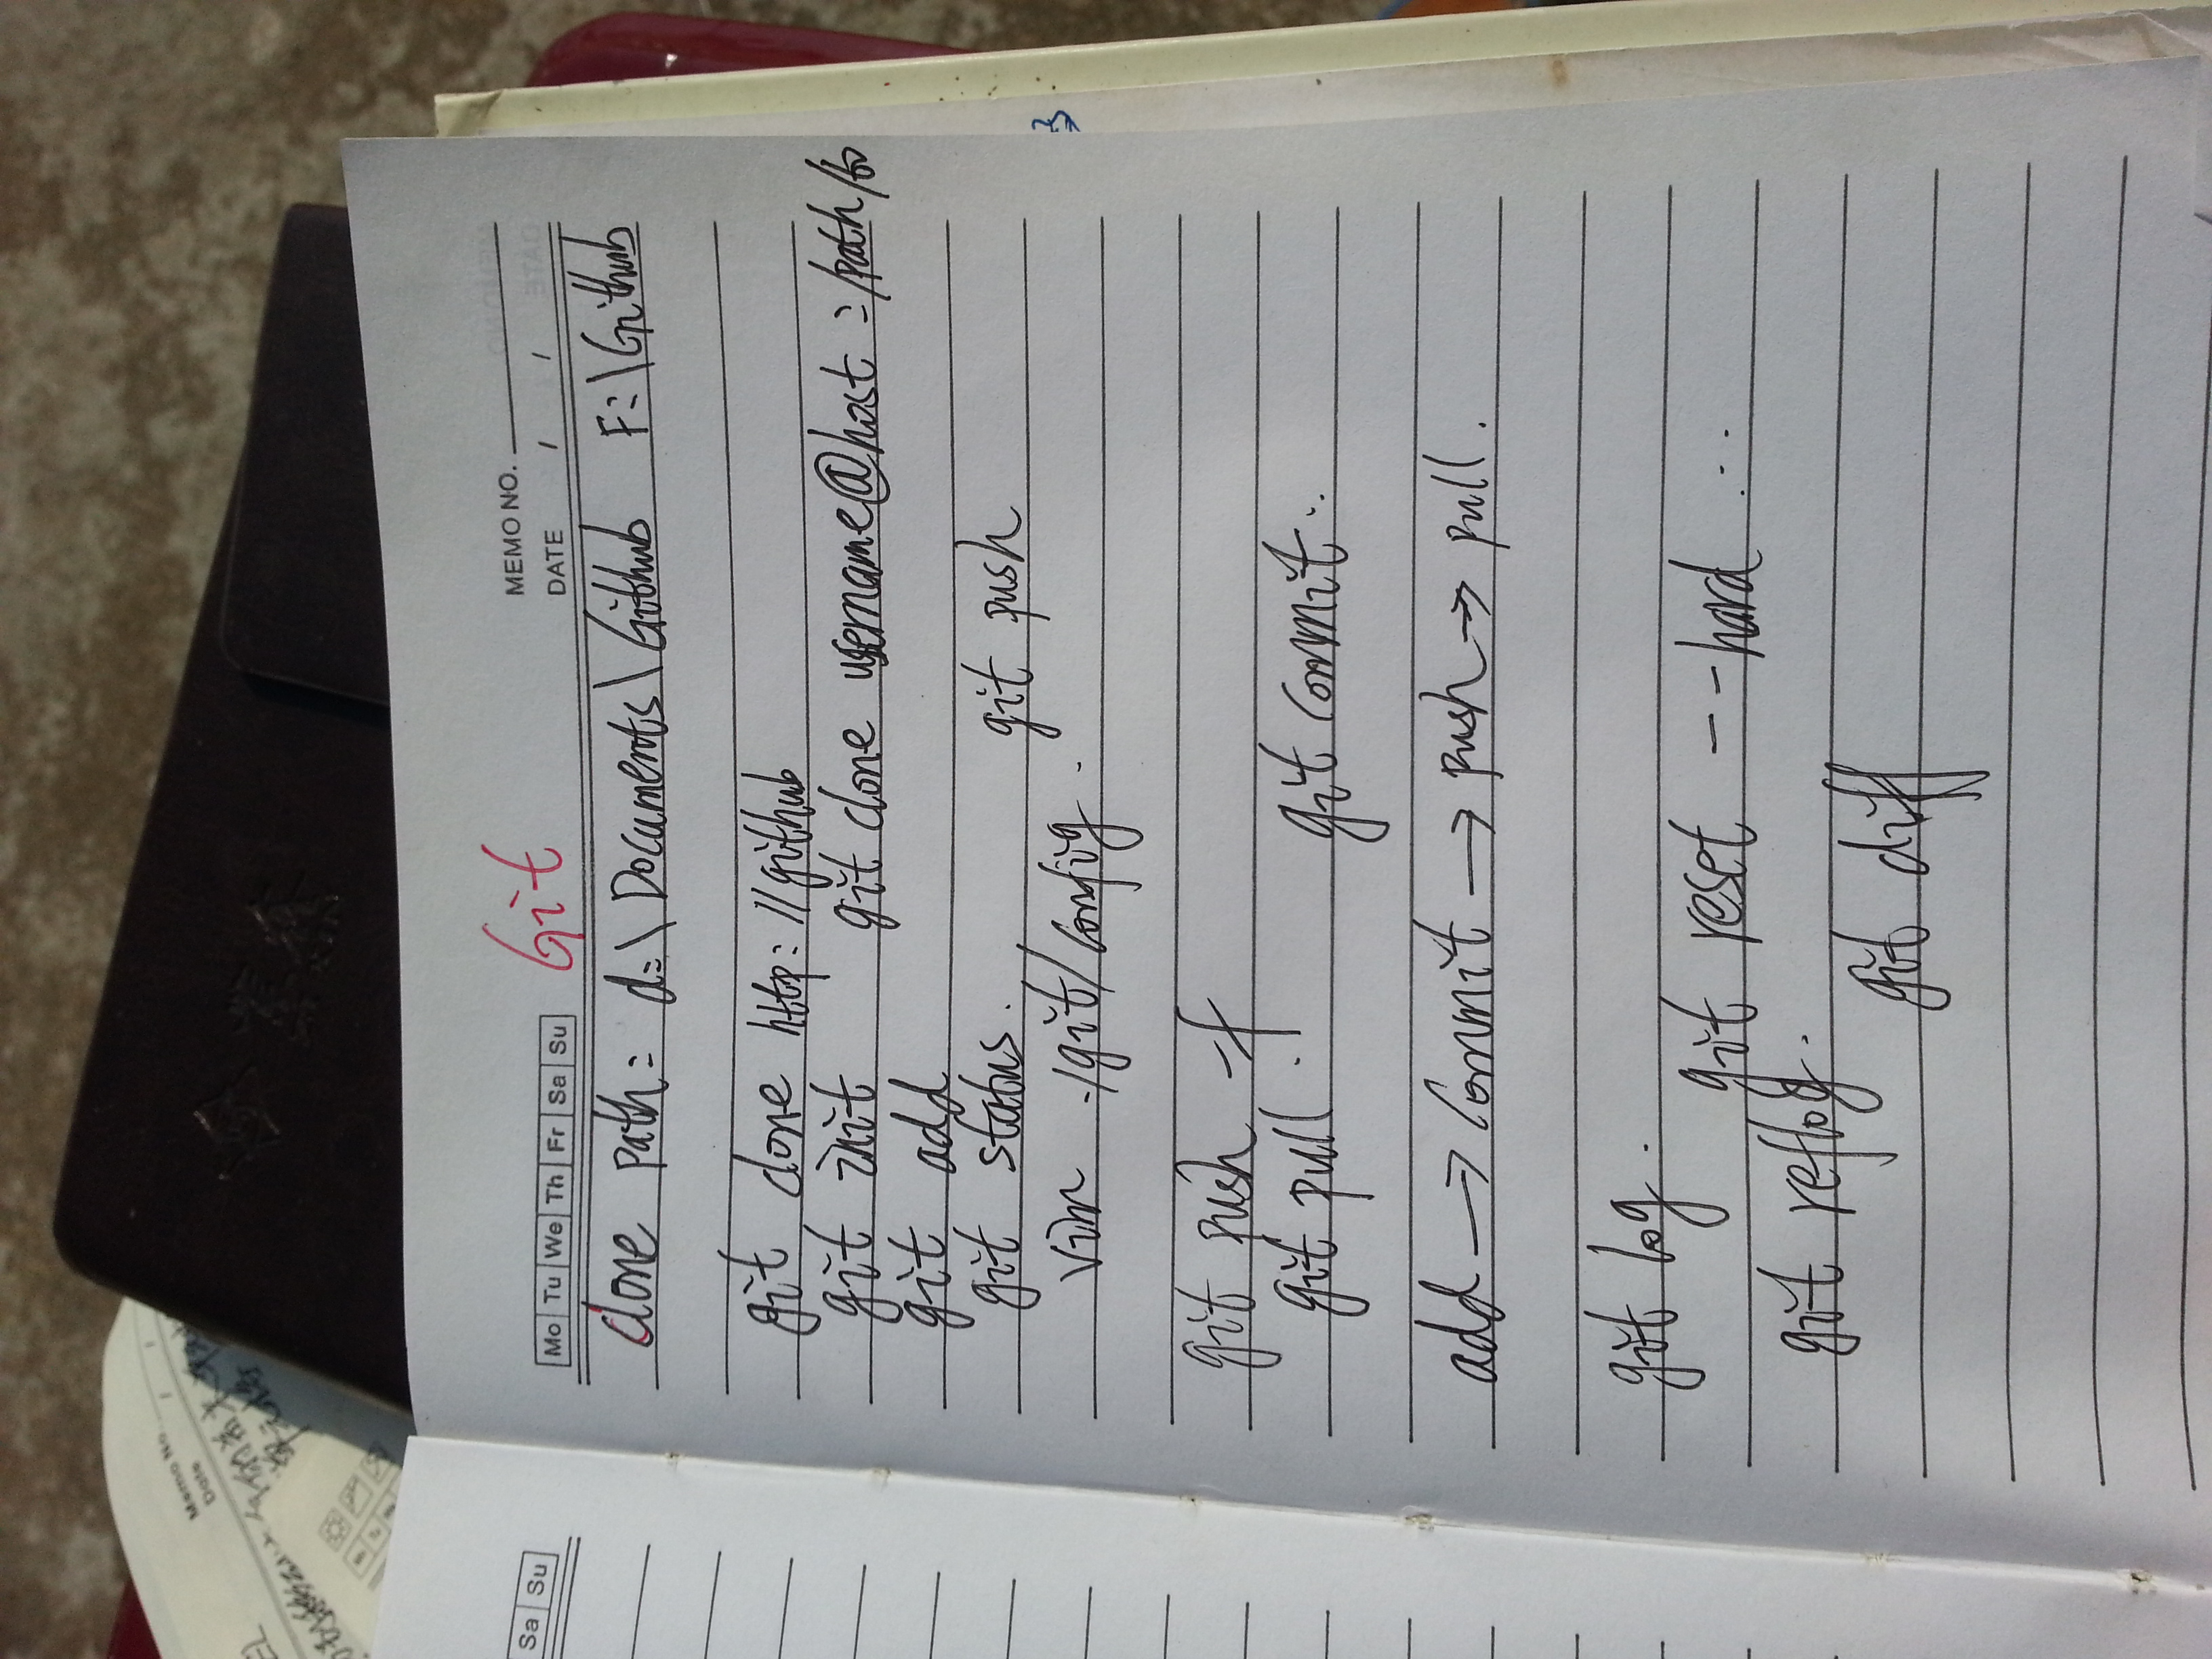 Memo No.
Date
Sa Su
Git
MEMO NO.
Mo Tu We Th Fr Sa Su
DATE / /
clone path: d:\Documents\Github F:\Github
git clone http://github
git init git clone username@host:/path/to
git add
git status. git push
vim ./git/config.
git push -f
git pull. git commit..
add → commit → push → pull.
git log.
git reset --hard ..
git reflog.
git diff